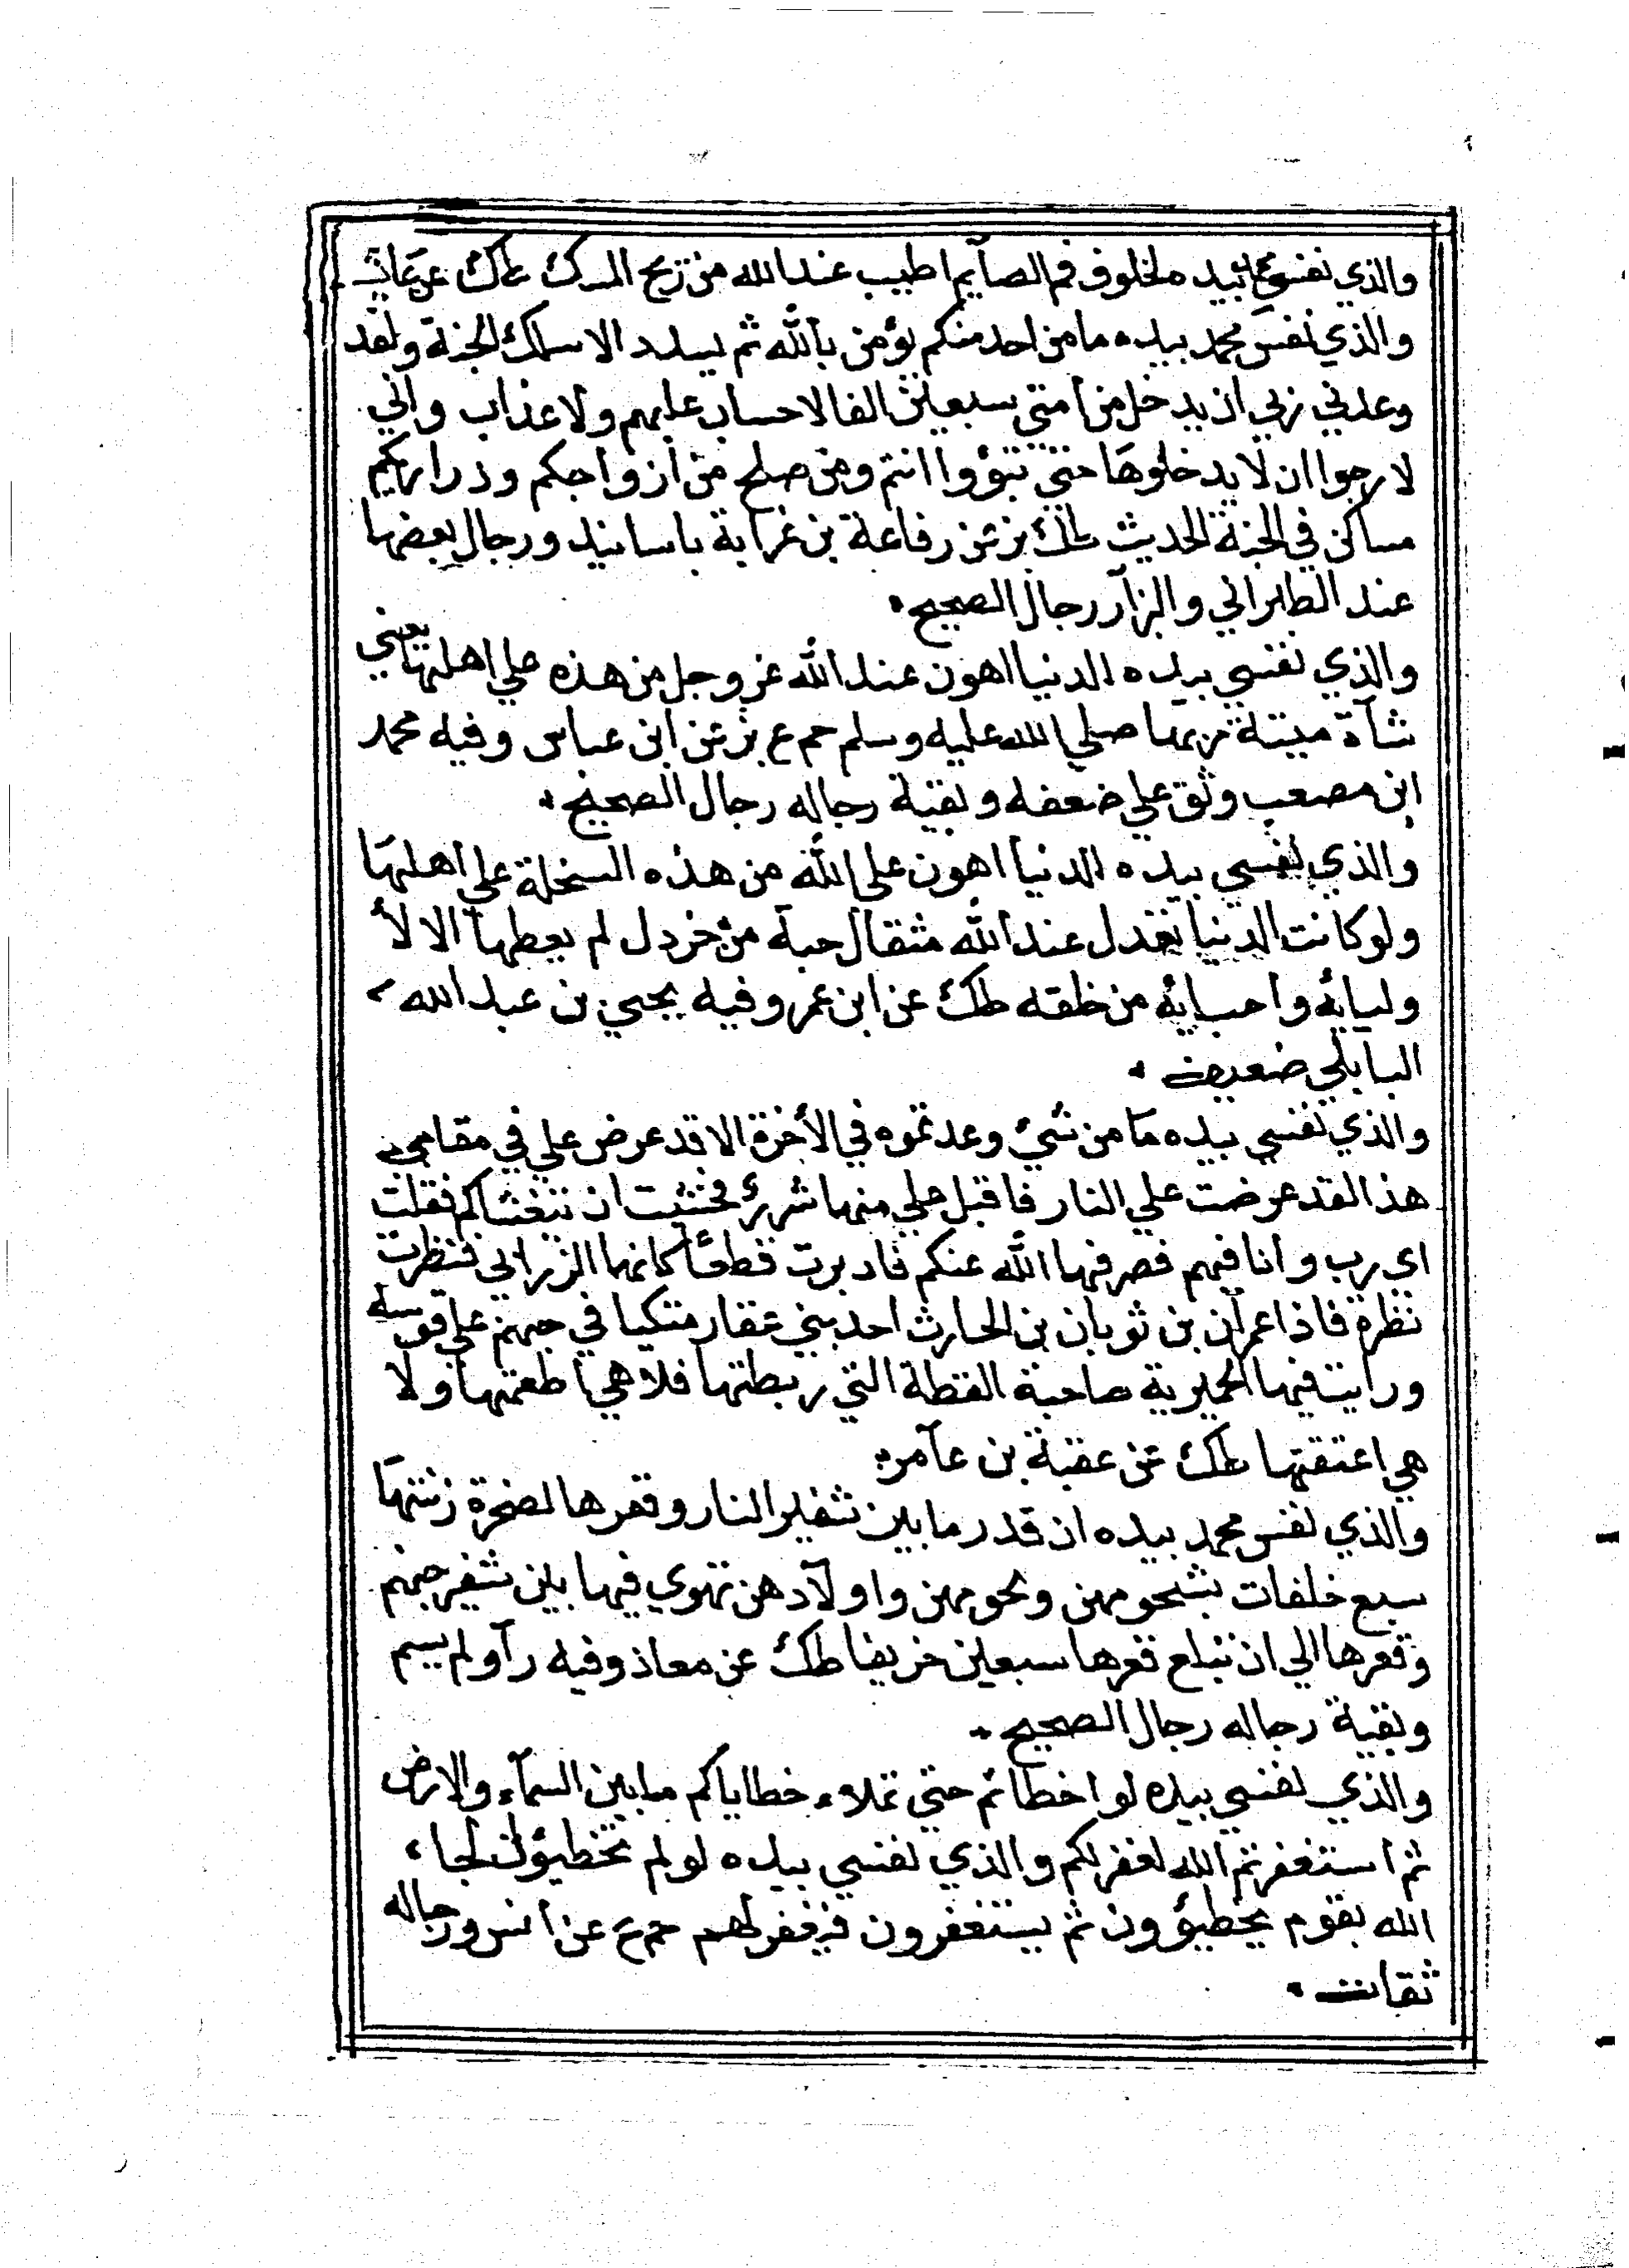 والذي نفس محمد بيده لخلوف فم الصآيم اطيب عند الله من ريح المسك طك عن
والذي نفس محمد بيده ما من احد منكم يؤمن بالله ثم يسدد الا سلك الجنة ولقد
وعدني ربي ان يدخل من امتي سبعين الفا لا حساب عليهم ولا عذاب واني
لارجوا ان لا يدخلوها حتي تبؤوا انتم ومن صلح من ازواجكم وذراريكم
مساكن في الجنة الحديث طك بز عن رفاعة بن عرابة باسانيد ورجال بعضها
عند الطبراني والبزآر رجال الصحيح
والذي نفسي بيده الدنيا اهون عند الله عز وجل من هذه علي اهلها يعني
شآة ميتة مر بها صلي الله عليه وسلم حم ع بز عن ابن عباس وفيه محمد
ابن مصعب وثق علي ضعفه وبقية رجاله رجال الصحيح
والذي نفسي بيده الدنيا اهون علي الله من هذه السخلة علي اهلها
ولو كانت الدنيا تعدل عند الله مثقال حبة من خردل لم يعطها الا لأ
وليائه واحبائه من خلقه طك عن ابن عمر وفيه يحيي بن عبد الله
البابلي ضعيف
والذي نفسي بيده ما من شيئ وعدتموه في الأخرة الا قد عرض علي في مقامي
هذا لقد عرضت علي النار فاقبل علي منها شرر فخشيت ان تغشاكم فقلت
اي رب وانا فيهم فصرفها الله عنكم فادبرت قطعا كانها الزرابي فنظرت
نظرة فاذا عمرآن بن ثوبان بن الحارث احد بني غفار متكيا في جهنم علي قوسه
ورايت فيها الحميرية صاحبة القطة التي ربطتها فلا هي اطعمتها ولا
هي اعتقتها طك عن عقبة بن عآمر
والذي نفس محمد بيده ان قدر ما بين شفير النار وقعرها لصخرة زنتها
سبع خلفات بشحومهن ولحومهن واولآدهن تهوي فيها بين شفير جهنم
وقعرها الي ان تبلغ قعرها سبعين خريفا طك عن معاذ وفيه رآو لم يسم
وبقية رجاله رجال الصحيح
والذي نفسي بيده لو اخطاتم حتي تملاء خطاياكم ما بين السمآء والارض
ثم استغفرتم الله لغفر لكم والذي نفسي بيده لو لم تخطيؤن لجاء
الله بقوم يخطيؤون ثم يستغفرون فيغفر لهم حم ع عن انس ورجاله
ثقات